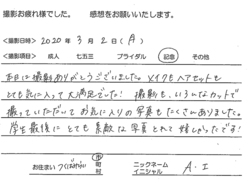 撮影お疲れ様でした。 感想をお願いいたします。
撮影日時 2020年 3月 2日(月)
撮影項目 成人 七五三 ブライダル 記念 その他
本日は撮影ありがとうございました。メイクもヘアセットも
とても気に入って大満足でした! 撮影も、いろんなカットで
撮っていただいてお気に入りの写真もたくさんありました。
学生最後にとても素敵な写真をとれて嬉しかったです!
お住まい つくばみらい 市 町 村 ニックネーム イニシャル A.I